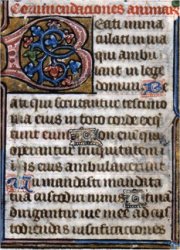 Commendaciones animar
Beati inma
culati in uia
qui ambu
lant in lege
domini Be
ati qui scrutantur testimo
nia eius in toto corde exqui
runt eum Non enim qui
operantur iniquitatem in
uiis eius ambulauerunt
Tu mandasti mandata
tua custodiri nimis
dirigantur uie mee ad cus
todiendas iustificationes